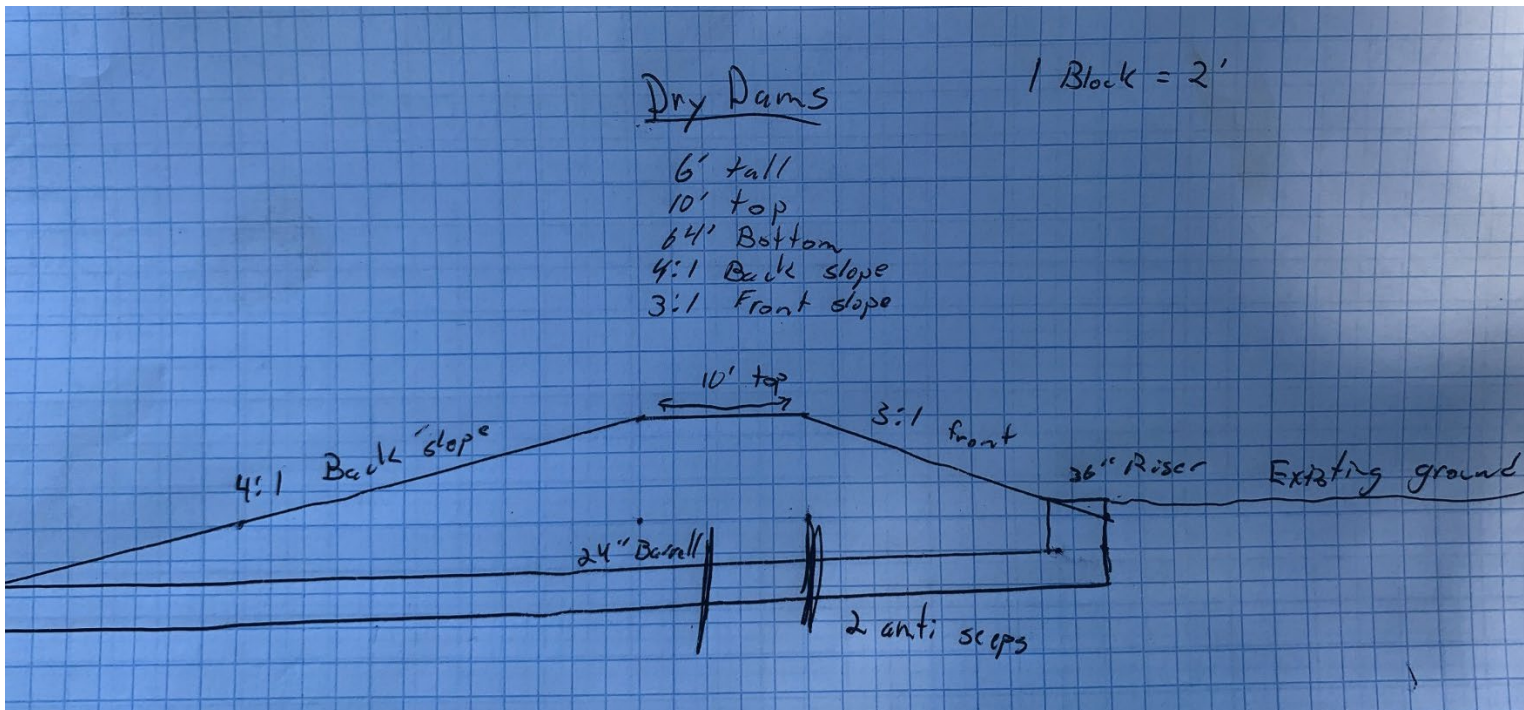 Dry Dams
1 Block = 2'
6' tall
10' top
64' Bottom
4:1 Back slope
3:1 Front slope
10' top
4:1 Back slope
3:1 front
36" Riser
Existing ground
24" Barell
2 anti seeps